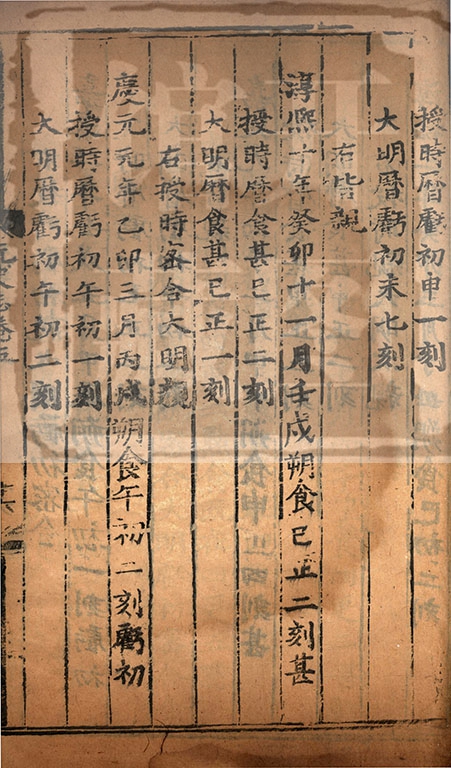 授時曆虧初申一刻
大明曆虧初未七刻
右皆親
淳熙十年癸卯十一月壬戌朔食巳正二刻甚
授時曆食甚巳正二刻
大明曆食甚巳正一刻
右授時密合大明親
慶元元年乙卯三月丙戌朔食午初二刻虧初
授時曆虧初午初一刻
大明曆虧初午初二刻